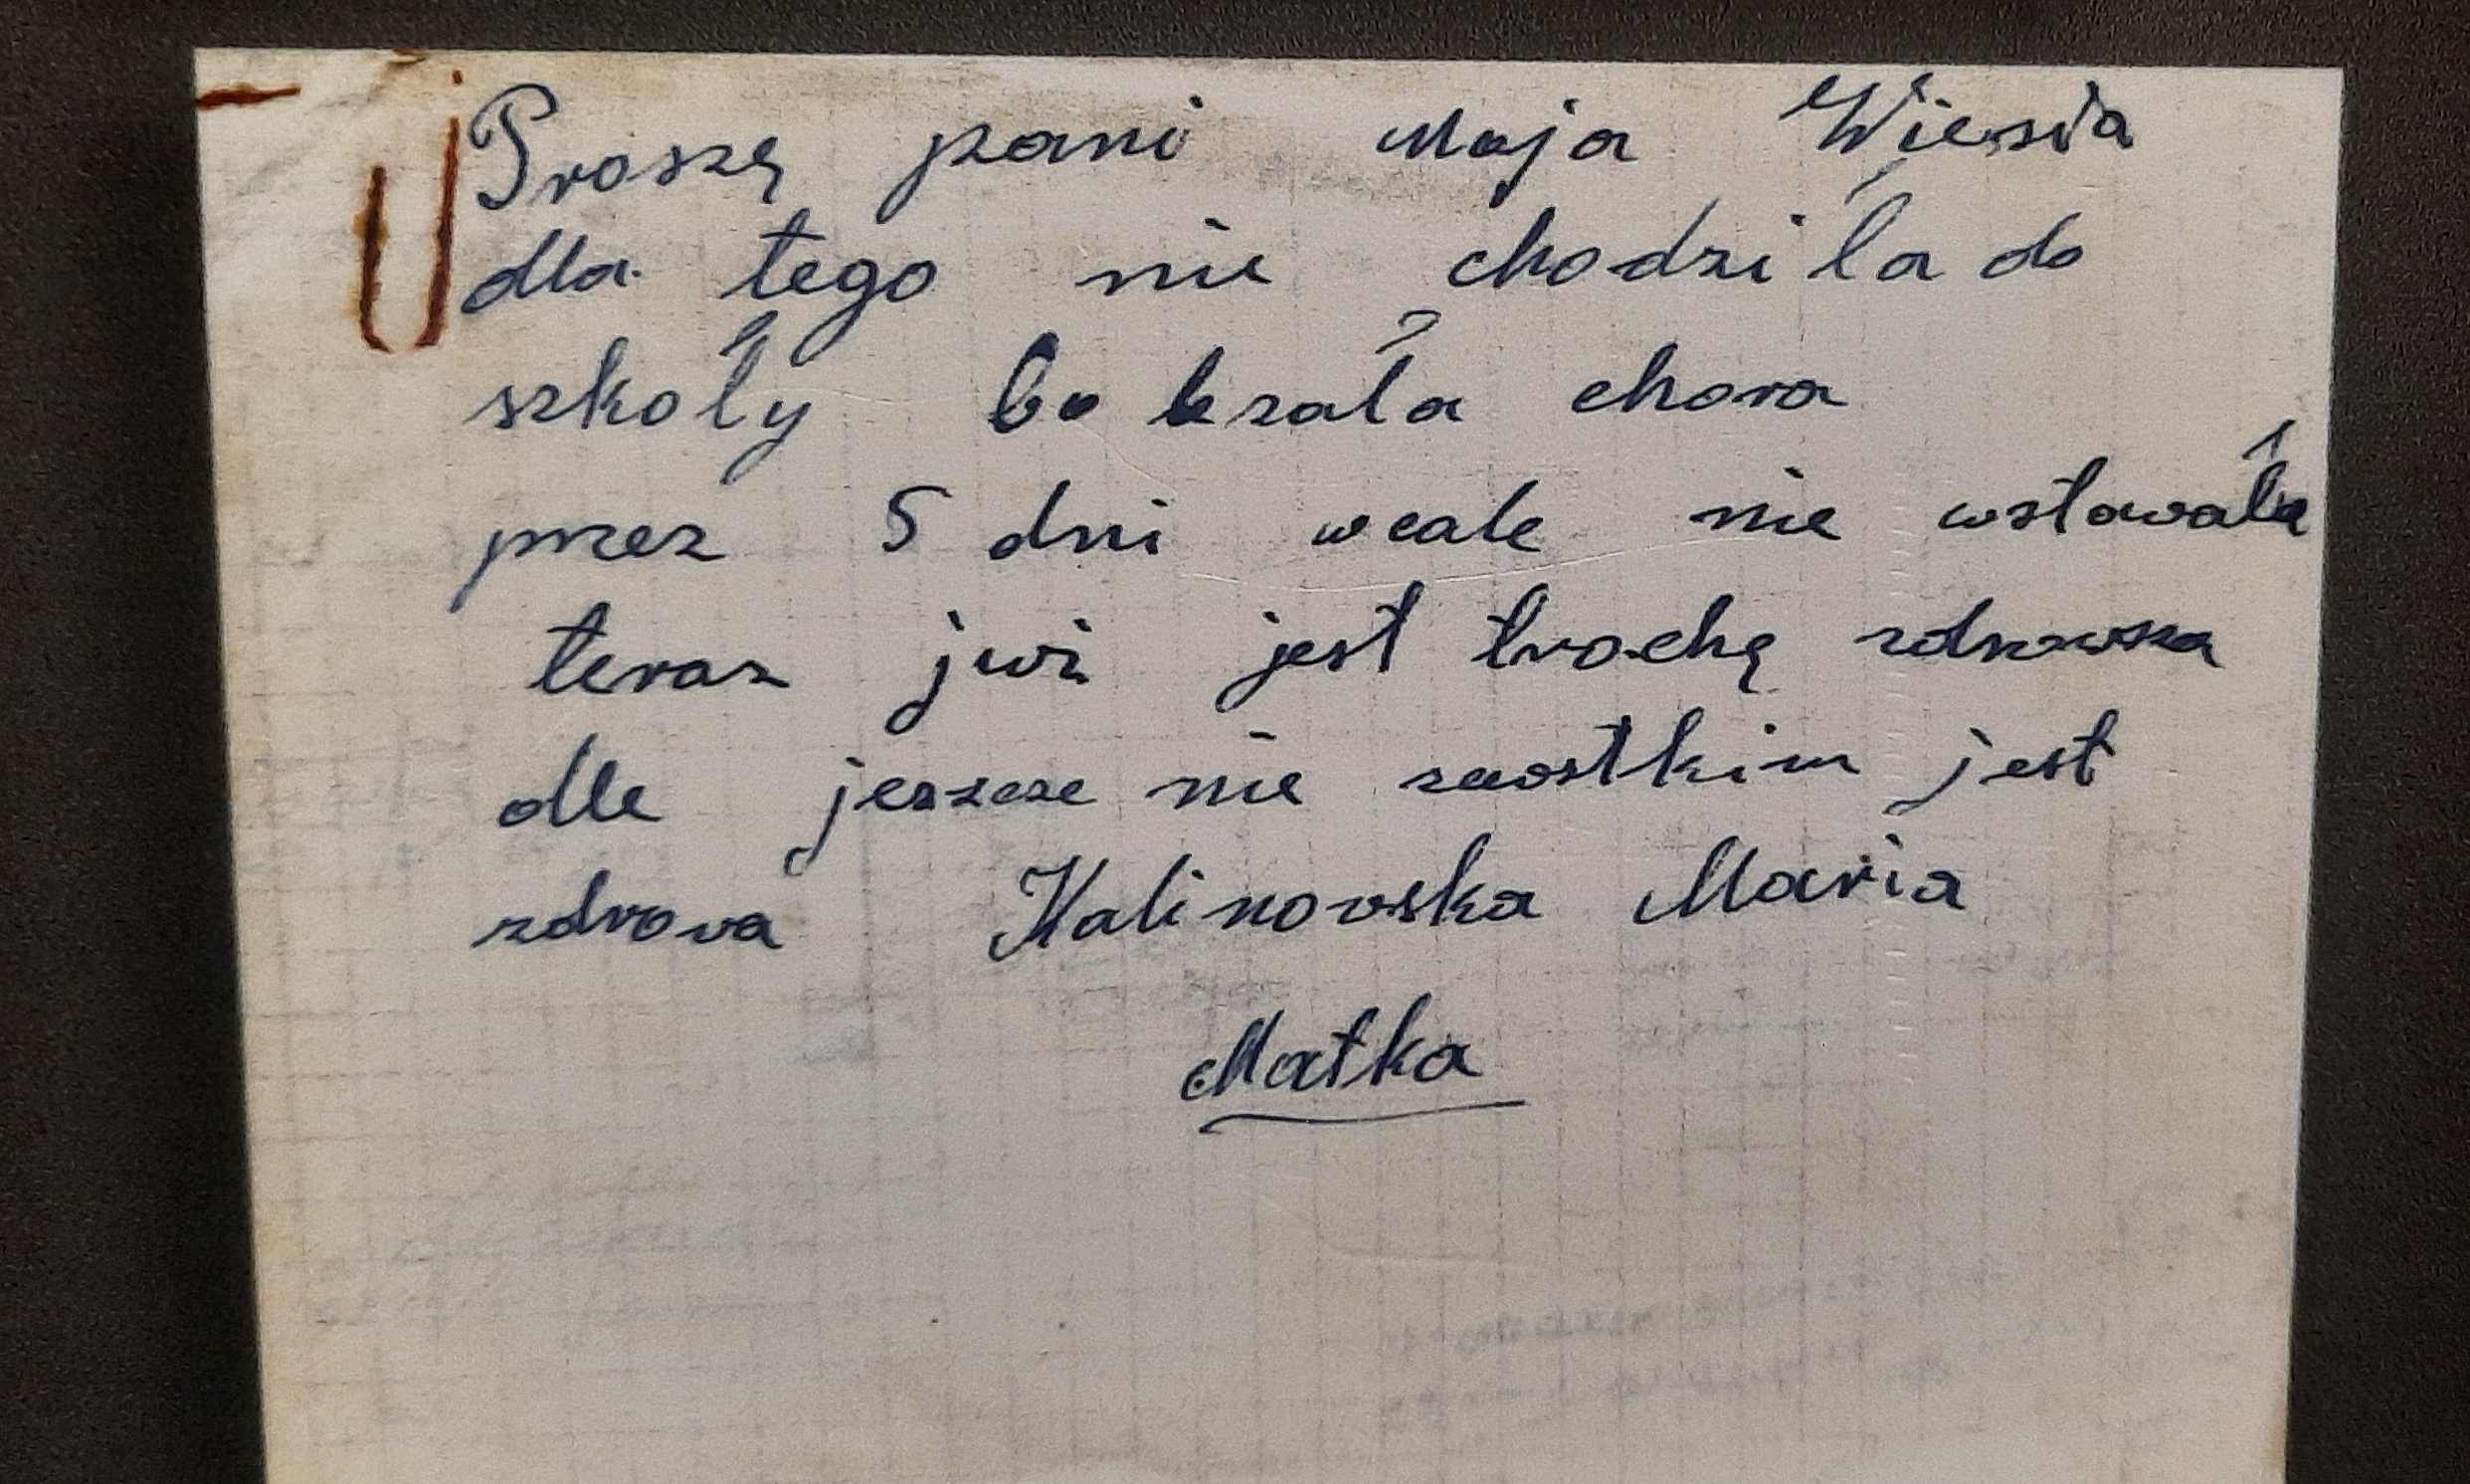 Proszę pani Moja Wiesia
dla tego nie chodziła do
szkoły bo lezała chora
przez 5 dni wcale nie wstawała
teraz juz jest trochę zdrowsza
alle jeszcze nie jest
zdrowa Kalinowska Maria
Matka